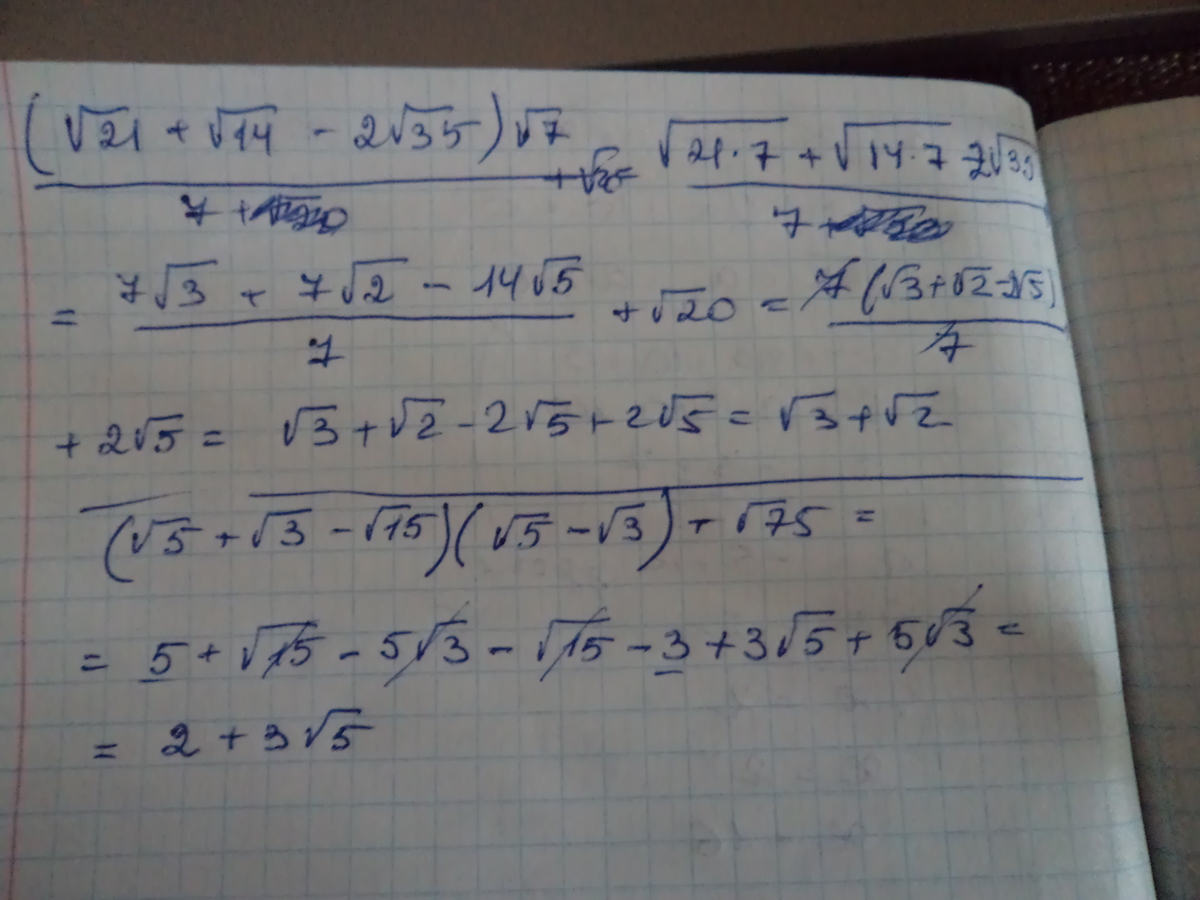 (√21 + √14 - 2√35)√7 / 7 + √20 = √21·7 + √14·7 - 2√35 / 7 +
= 7√3 + 7√2 - 14√5 / 7 + √20 = 7(√3+√2-2√5) / 7
+ 2√5 = √3 + √2 - 2√5 + 2√5 = √3 + √2
(√5 + √3 - √15)(√5 - √3) + √75 =
= 5 + √15 - 5√3 - √15 - 3 + 3√5 + 5√3 =
= 2 + 3√5